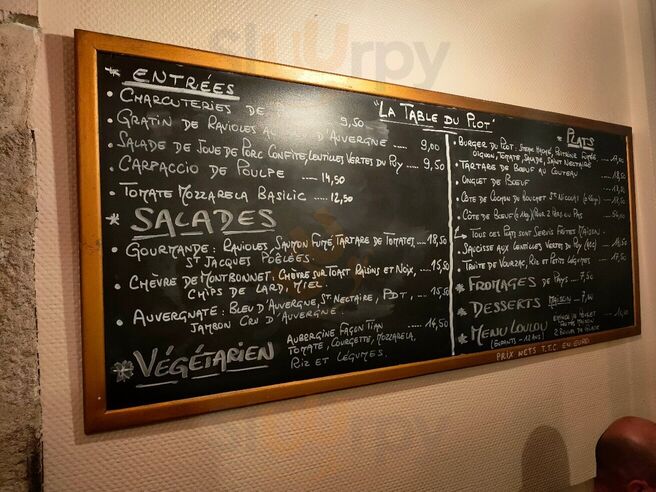 Sluurpy
"LA TABLE DU PLOT"
* ENTRÉES
• CHARCUTERIES DE 9,50
• GRATIN DE RAVIOLES D'AUVERGNE .... 9,00
• SALADE DE JOUE DE PORC CONFITE, LENTILLES VERTES DU PUY ... 9,50
• CARPACCIO DE POULPE .... 14,50
• TOMATE MOZZARELA BASILIC .... 12,50
* SALADES
• GOURMANDE : RAVIOLES, SAUMON FUMÉ, TARTARE DE TOMATES .... 18,50
ST JACQUES POÊLÉES.
• CHÈVRE DE MONTBONNET : CHÈVRE SUR TOAST RAISINS ET NOIX, .... 15,50
CHIPS DE LARD, MIEL.
• AUVERGNATE : BLEU D'AUVERGNE, ST NECTAIRE, PDT, .... 15,50
JAMBON CRU D'AUVERGNE.
* VÉGÉTARIEN
AUBERGINE FAÇON TIAN .... 14,50
TOMATE, COURGETTE, MOZZARELA,
RIZ ET LÉGUMES.
* PLATS
• BURGER DU PLOT : STEAK HACHÉ, POITRINE FUMÉE
OIGNON, TOMATE, SALADE, SAINT NECTAIRE
• TARTARE DE BOEUF AU COUTEAU
• ONGLET DE BOEUF
• CÔTE DE COCHON DU
• CÔTE DE BOEUF (1 kg) POUR 2 PERS OU PAS
→ TOUS CES PLATS SONT SERVIS FRITES MAISON.
• SAUCISSE AUX LENTILLES VERTES DU PUY
• TRUITE DE VOURZAC, RIZ ET PETITS LÉGUMES 17,50
* FROMAGES DE PAYS - 7,50
* DESSERTS MAISON -
* MENU LOULOU
(ENFANTS - 12 ANS)
FRITES MAISON
2 BOULES DE GLACE
PRIX NETS T.T.C. EN EURO
Sluurpy